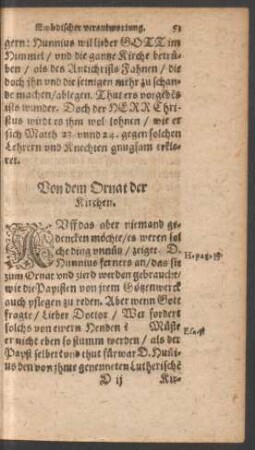 Embdischer verantwortung. 53
gern: Hunnius wil lieber GOTT im
Himmel / und die gantze Kirche betrü-
ben / als des Antichrists Fahnen / die
doch ihn und die seinigen mehr zu schan-
de machen / ablegen. Thut ers vorgebēs
ists wunder. Doch der HERR Chri-
stus würdt es ihm wol lohnen / wie er
sich Matth 23. unnd 24. gegen solchen
Lehrern und Knechten gnugsam erkle-
ret.
Von dem Ornat der
Kirchen.
Auff das aber niemand ge-
dencken möchte / es weren sol
che ding unnütz / zeiget D.
Hunnius ferners an / das sie
zum Ornat und zierd werden gebraucht /
wie die Papisten von jrem Götzenwerck
auch pflegen zu reden. Aber wenn Gott
fragte / Lieber Doctor / Wer fordert
solchs von ewern Henden? Müste
er nicht eben so stumm werden / als der
Papst selber? und thut fürwar D. Hunius
den von jhme genenneten Lutherische
D ij Kir-
H. pag.
Esa.